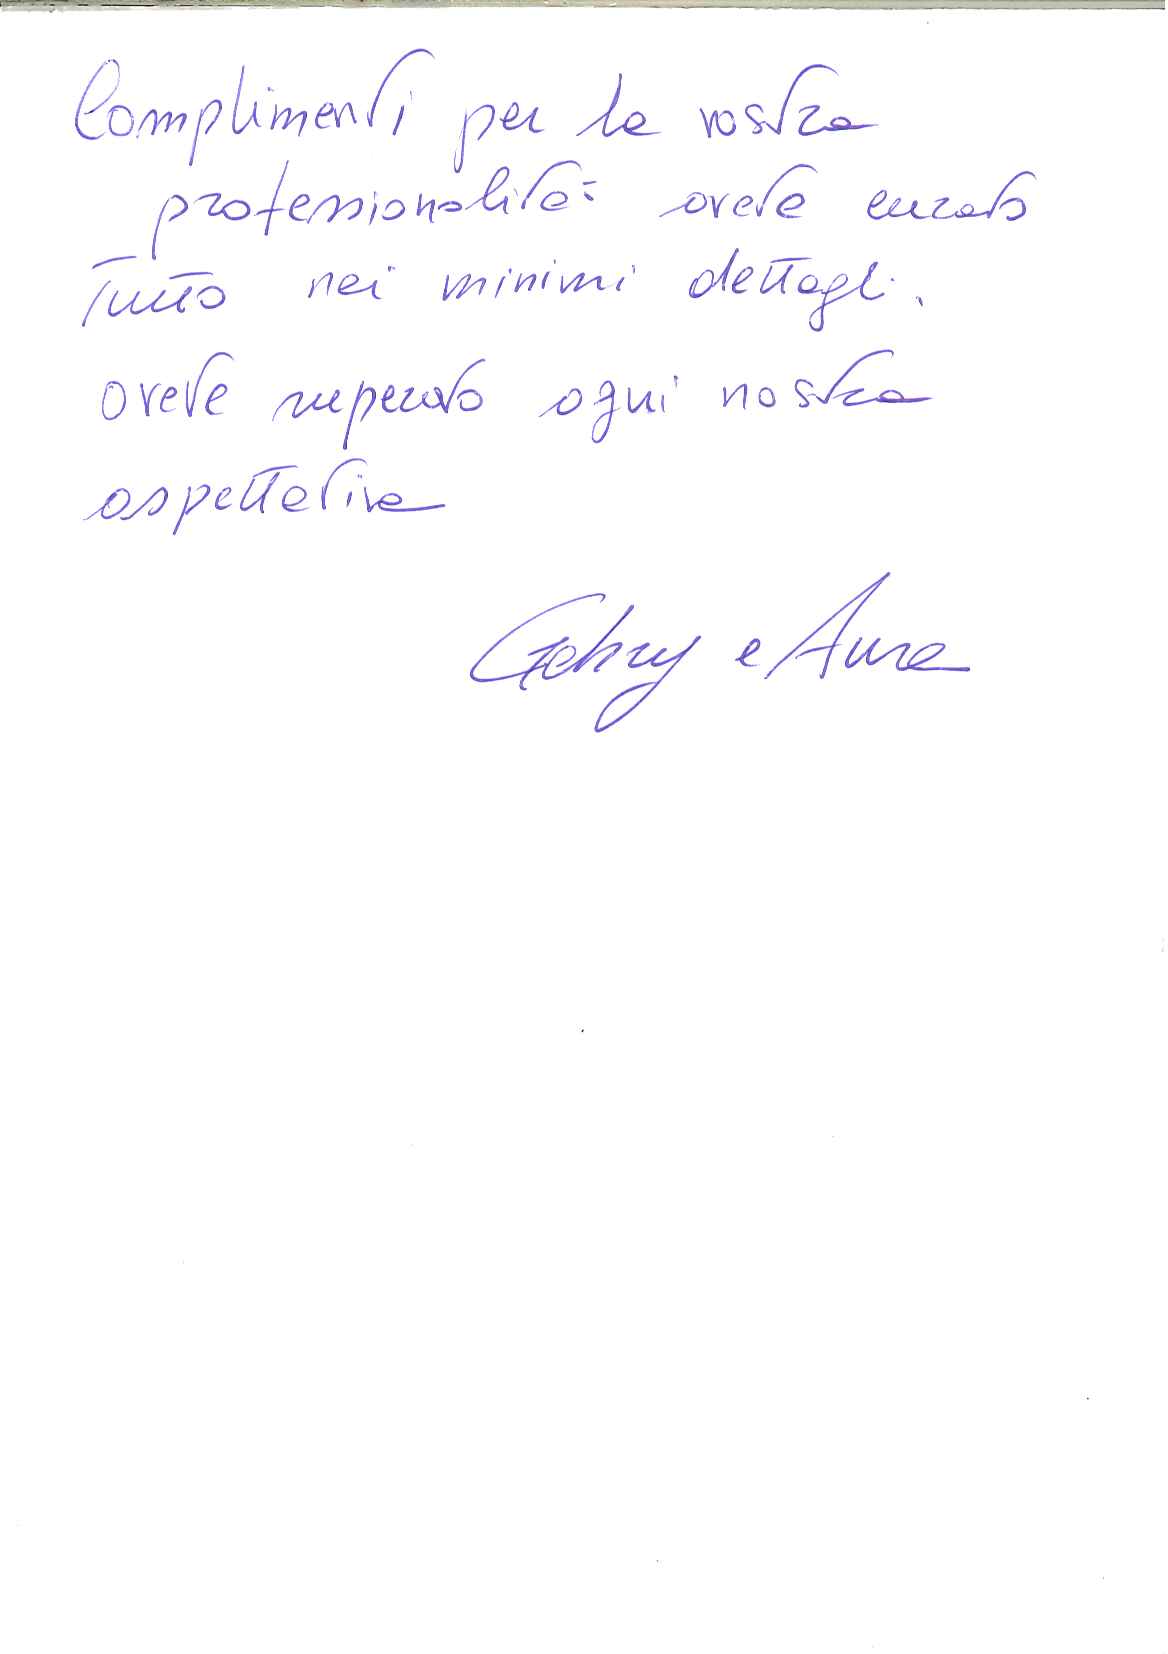 Complimenti per la vostra
professionalità avete curato
Tutto nei minimi dettagli.
avete superato ogni nostra
aspettativa
Gabry e Aura